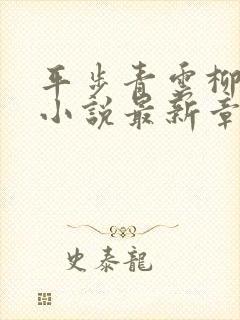 平步青雲柳
小說最新章
史泰龍